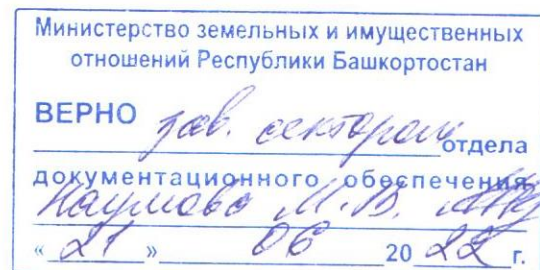 Министерство земельных и имущественных
отношений Республики Башкортостан
ВЕРНО зав. сектором отдела
документационного обеспечения
Наумова М.В.
« 21 » 06 20 22 г.